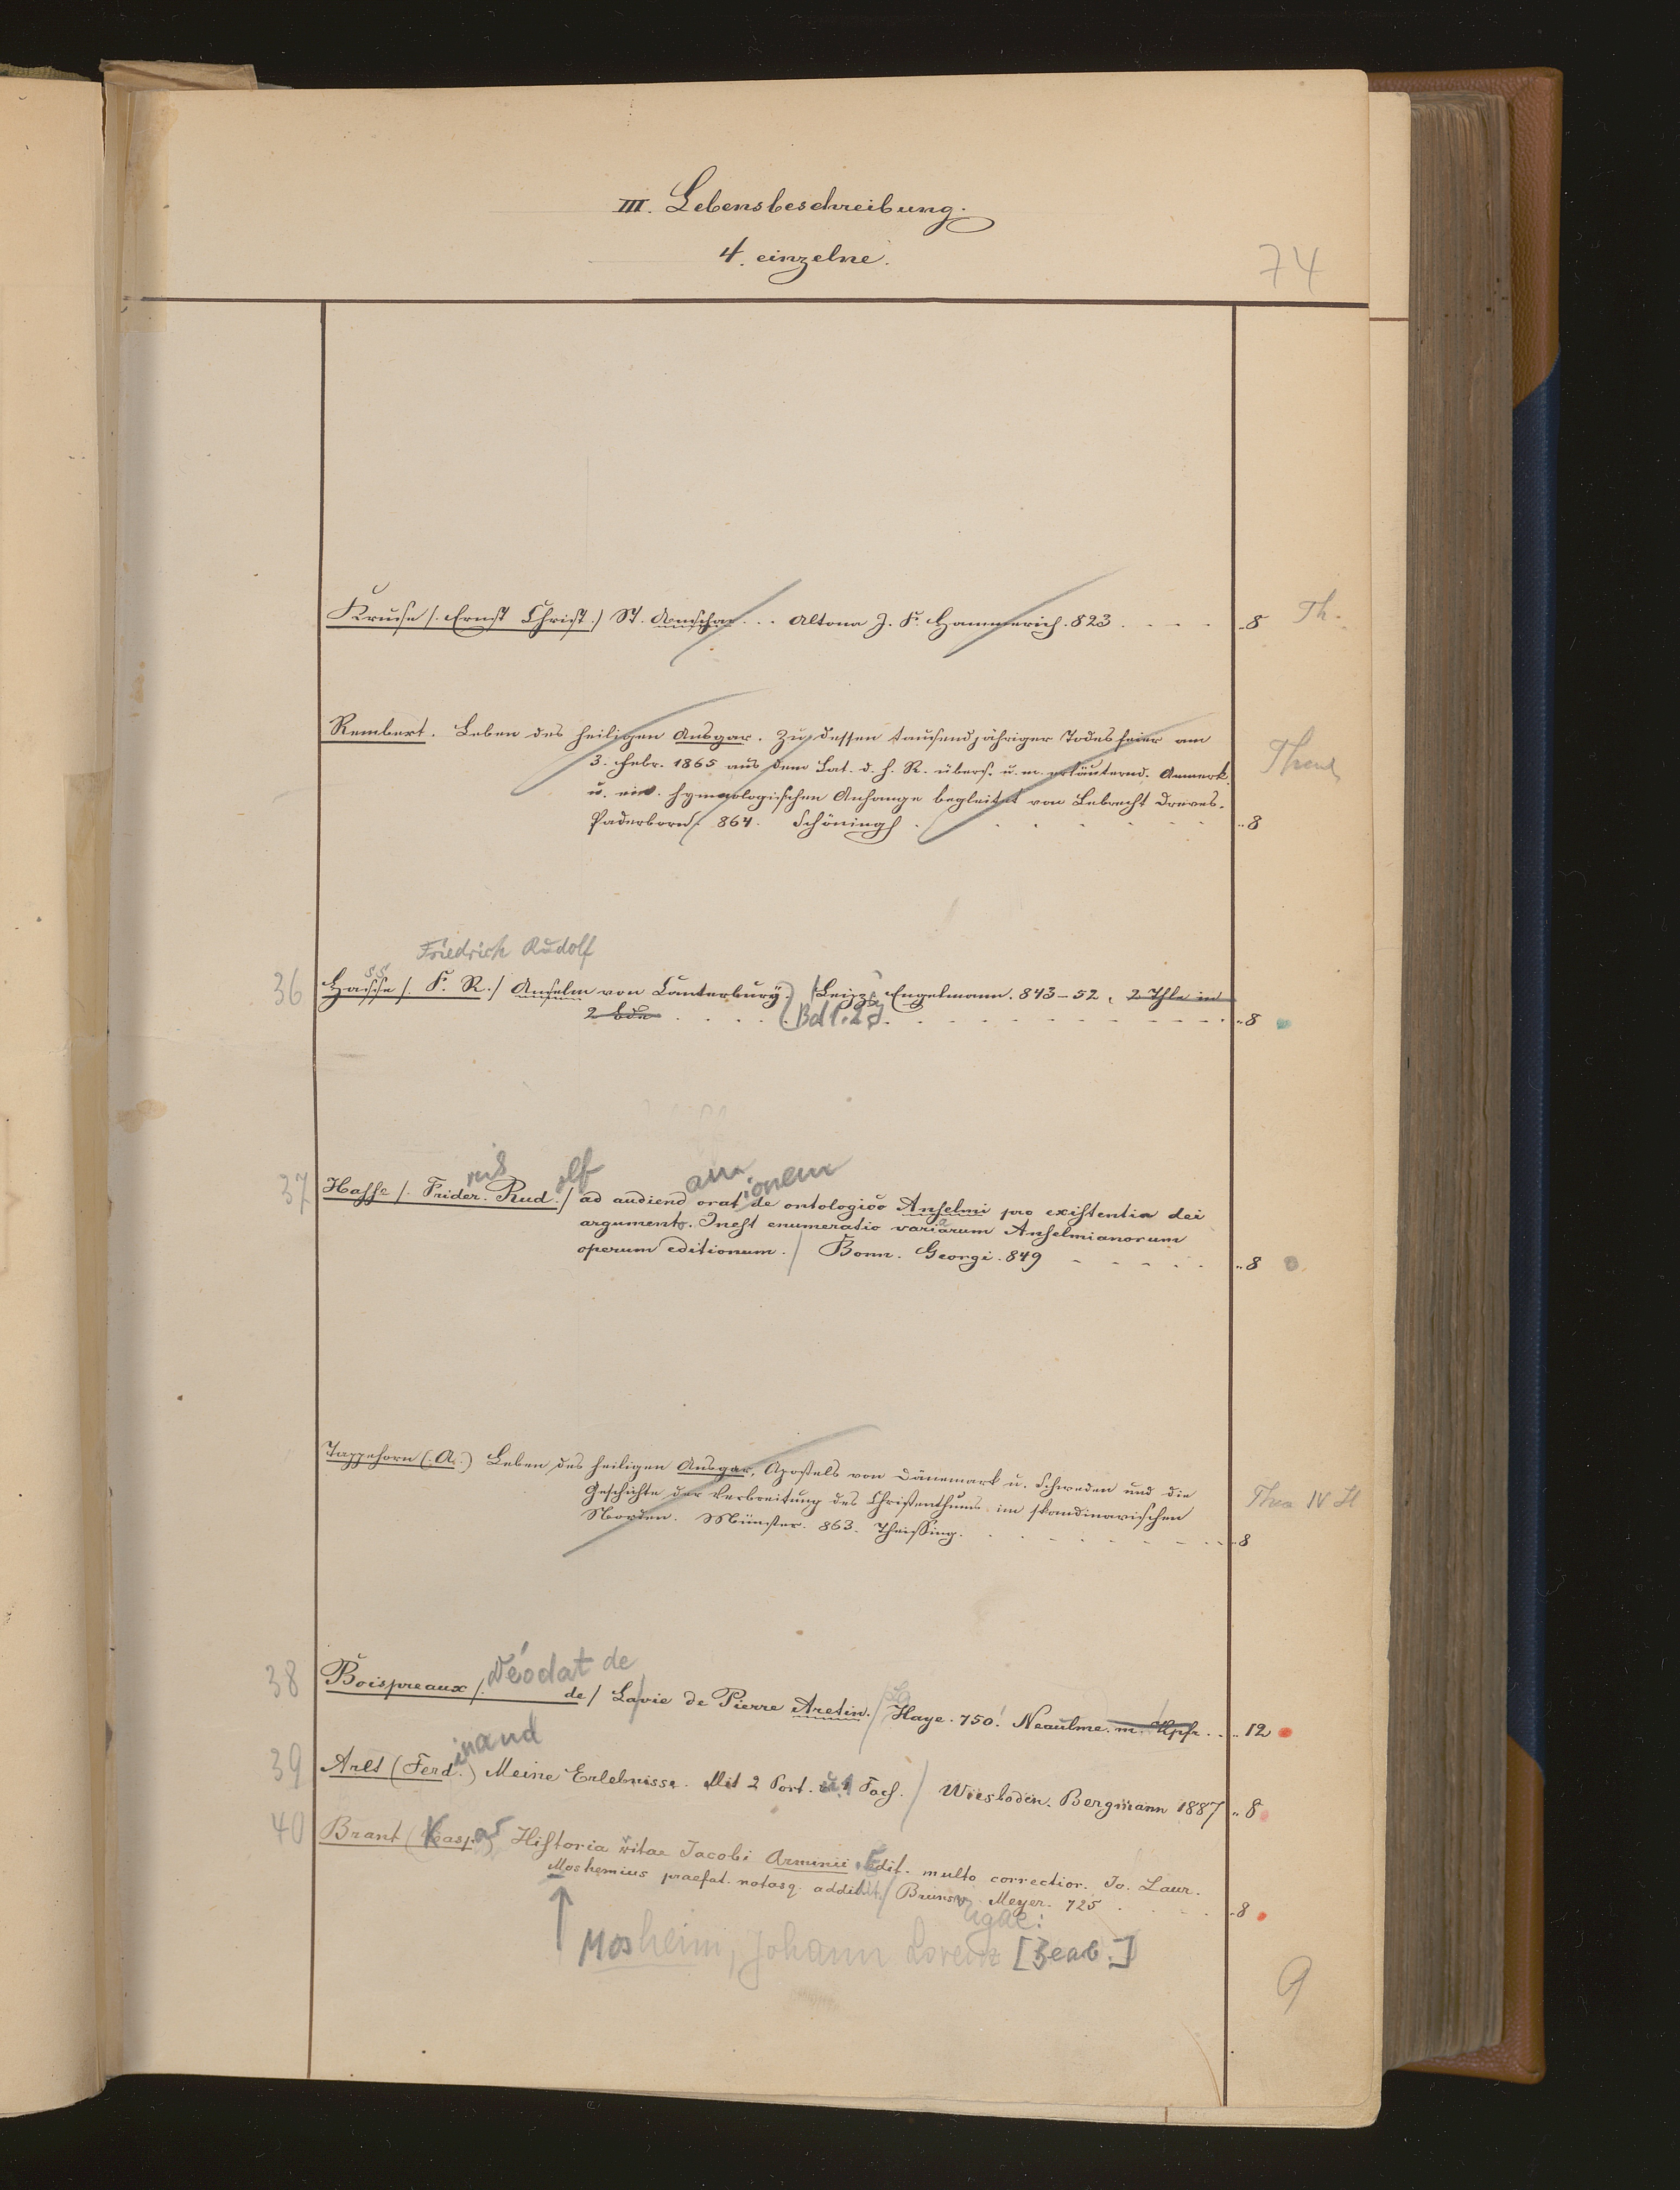 III. Lebensbeschreibung.
4. einzelne.
74
Kruse /. Ernst Christ./ St. Anschar... Altona J. F. Hammerich. 823 . . . . 8 Th.
Rembert. Leben des heiligen Ansgar. Zu dessen tausendjähriger Todesfeier am
3. Febr. 1865 aus dem Lat. d. h. R. übers. u. m. erläuternd. Anmerk.
u. ein. hymnologischen Anhange begleitet von Lebrecht Dreves.
Paderborn. 864. Schöningh . . . . 8
Friedrich Rudolf
36 Hasse /. F. R./ Anselm von Canterbury. / Leipz. Engelmann. 843-52, 2 Thle in
2 Bde . . . . Bd 1.2 . . . . 8
nis olf am ionem
37 Hasse /. Frider. Rud./ ad audiend orat de ontologico Anselmi pro existentia dei
argumento. Inest enumeratio variarum Anselmianorum
operum editionum. / Bonn. Georgi. 849 . . . . 8
Tappehorn (. A.) Leben des heiligen Ansgar, Apostels von Dänemark u. Schweden und die
Geschichte der Verbreitung des Christenthums im skandinavischen
Norden. Münster. 863. Theissing. . . . . 8
Déodat de
38 Boispreaux /. de/ La vie de Pierre Aretin. / La Haye. 750. Neaulme. m. Kpfr. . . 12
inand
39 Arlt (Ferd.) Meine Erlebnisse. Mit 2 Port. u. 1 Facs. / Wiesbaden. Bergmann 1887 .. 8
40 Brant (Kaspar) Historia vitae Jacobi Arminii. Edit. multo correctior. Jo. Laur.
Moshemius praefat. notasq. addidit / Brunsv. Meyer. 725 . . . . 8
igae:
Mosheim, Johann Lorenz [Bearb.]
9